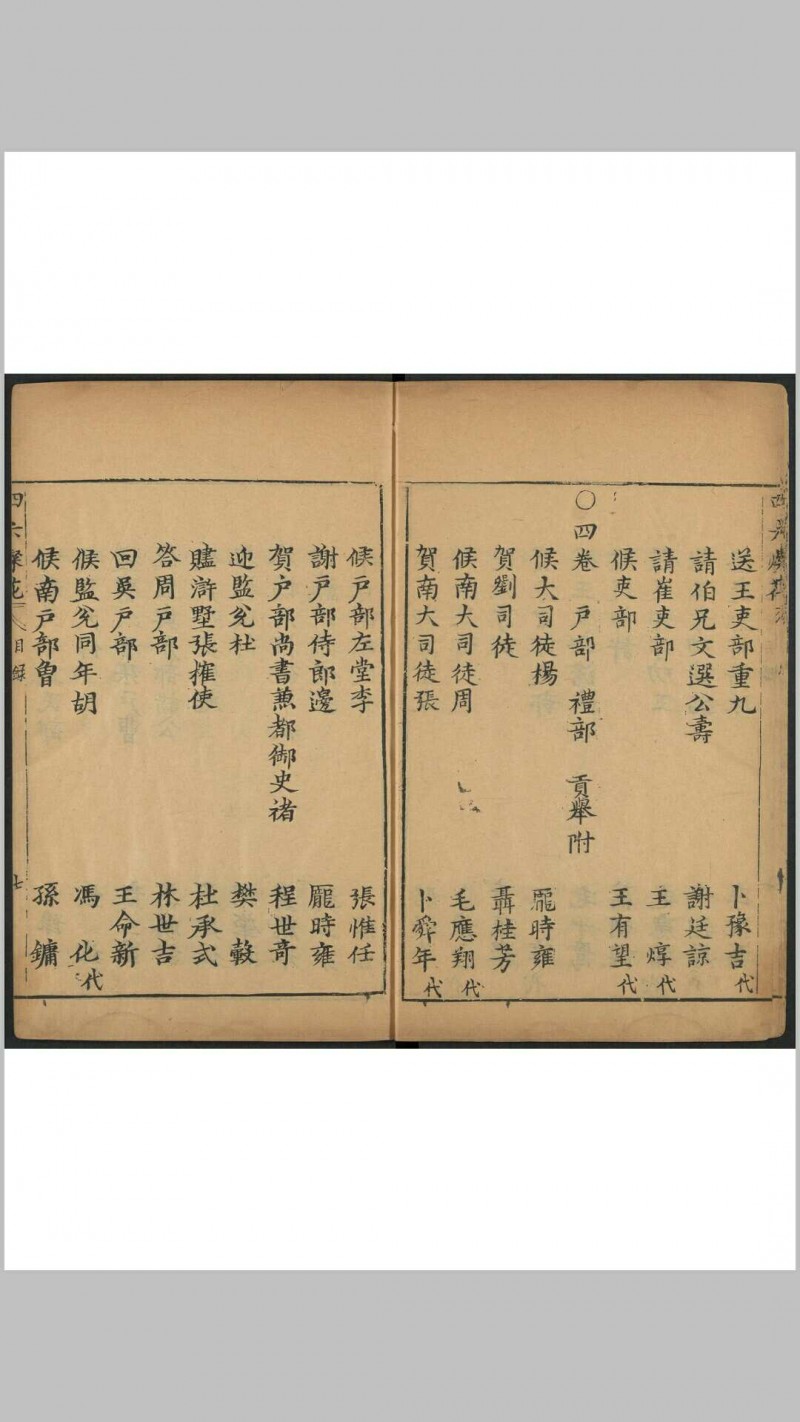 送王吏部重九 卜豫吉代
請伯兄文選公壽 謝廷諒
請崔吏部 王焞代
候吏部 王有望代
○四卷 戶部 禮部 貢舉附
候大司徒楊 龎時雍
賀劉司徒 聶桂芳
候南大司徒周 毛應翔代
賀南大司徒張 卜舜年代
候戶部左堂李 張惟任
謝戶部侍郎邊 龎時雍
賀戶部尚書兼都御史褚 程世竒
迎監兊杜 樊
贐滸墅張搉使 杜承式
答周戶部 林世吉
回吳戶部 王命新
候監兊同年胡 馮化代
候南戶部曽 孫鏞
四六 花 目錄 七